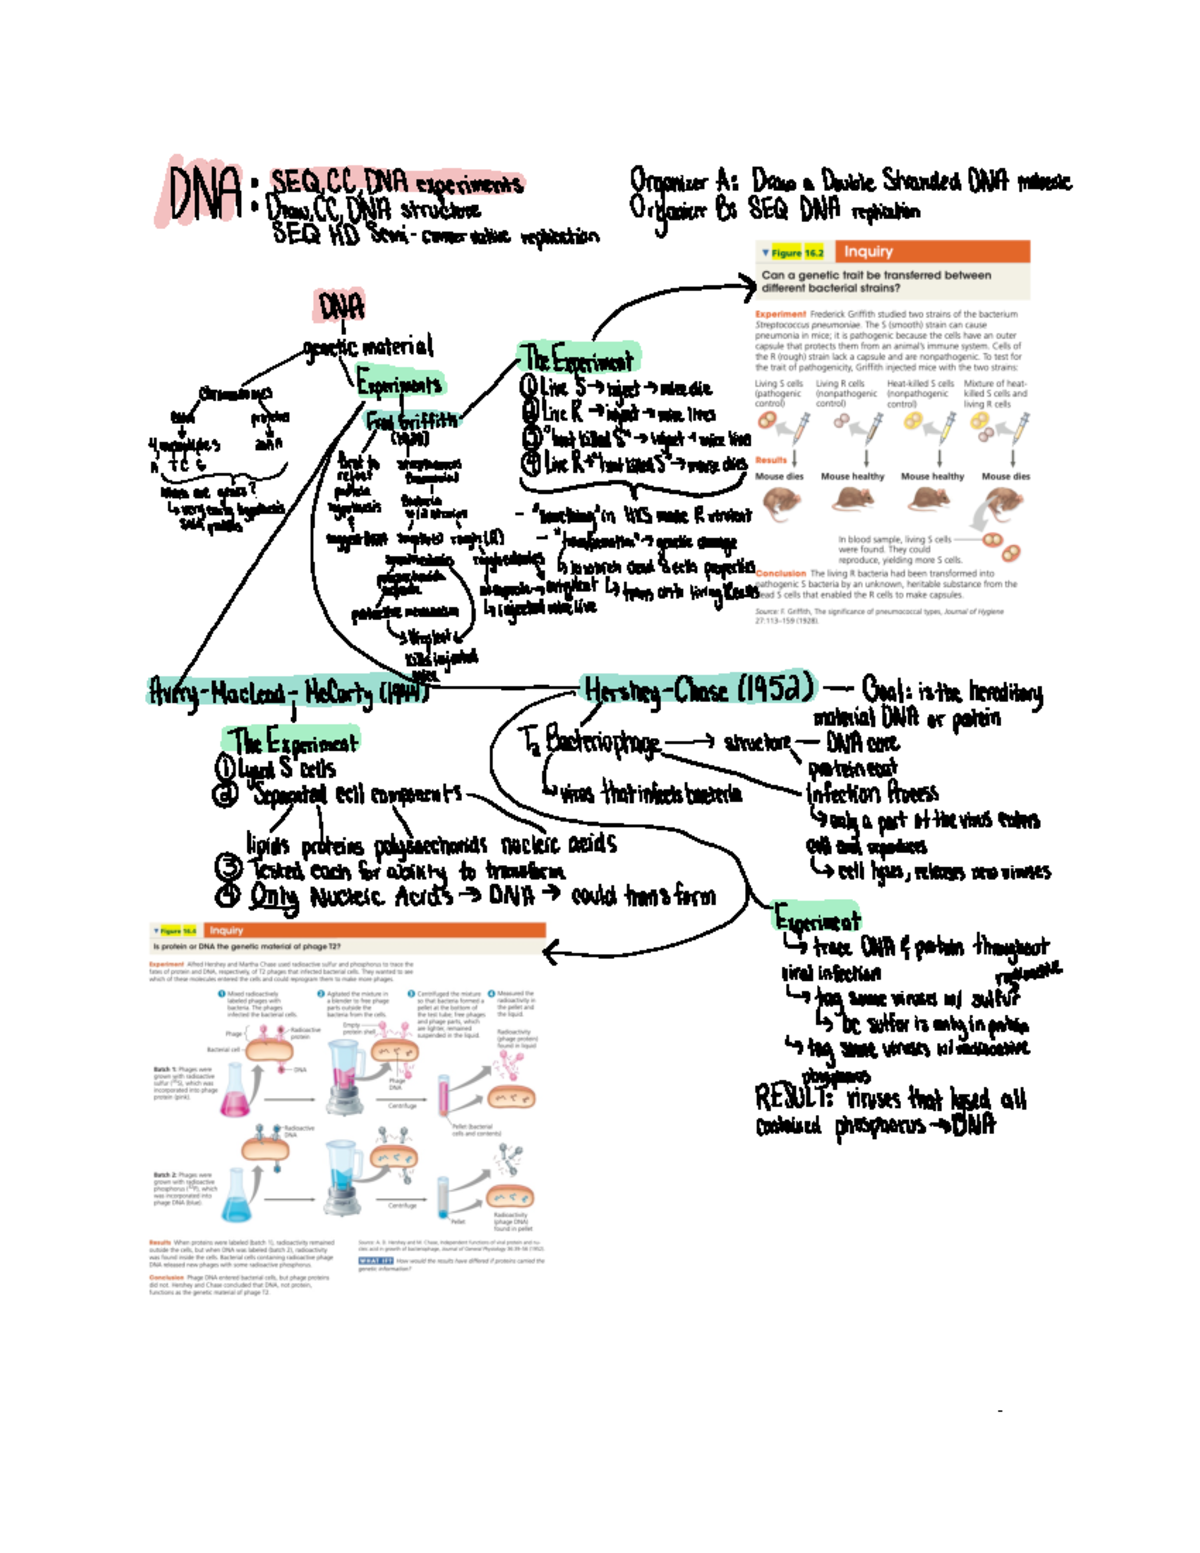 DNA: SEQ, CC, DNA experiments
Draw, CC, DNA structure
SEQ HD Semi-conservative replication
Organizer A: Draw a Double Stranded DNA molecule
Organizer B: SEQ DNA replication
DNA
genetic material
Chromosomes
DNA
proteins
4 nucleotides
A T C G
20AA
Which are genes?
↳ very early hypothesis
said proteins
Experiments
Fred Griffith
(1928)
first to
reject
protein
hypothesis
Streptococcus
Bacteria
rough (R)
protective mechanism
↳ Virulent
kills injected
mice
↳ injected mice live
The Experiment
① Live S → inject → mice die
② Live R → inject → mice lives
③ "heat killed S" → inject → mice live
④ Live R + "heat killed S" → mouse dies
- "something" in HKS made R virulent
- "transformation" → genetic change
↳ trans onto living R cells
▼ Figure 16.2 Inquiry
Can a genetic trait be transferred between
different bacterial strains?
Experiment Frederick Griffith studied two strains of the bacterium
Streptococcus pneumoniae. The S (smooth) strain can cause
pneumonia in mice; it is pathogenic because the cells have an outer
capsule that protects them from an animal's immune system. Cells of
the R (rough) strain lack a capsule and are nonpathogenic. To test for
the trait of pathogenicity, Griffith injected mice with the two strains:
Living S cells
(pathogenic
control)
Living R cells
(nonpathogenic
control)
Heat-killed S cells
(nonpathogenic
control)
Mixture of heat-
killed S cells and
living R cells
Results
Mouse dies
Mouse healthy
Mouse healthy
Mouse dies
In blood sample, living S cells
were found. They could
reproduce, yielding more S cells.
Conclusion The living R bacteria had been transformed into
pathogenic S bacteria by an unknown, heritable substance from the
dead S cells that enabled the R cells to make capsules.
Source: F. Griffith, The significance of pneumococcal types, Journal of Hygiene
27:113–159 (1928).
Avery-MacLeod-McCarty (1944)
The Experiment
① Lysed S cells
② Separated cell components
lipids proteins polysaccharids nucleic acids
③ Tested each for ability to transform
④ Only Nucleic Acids → DNA → could transform
Hershey-Chase (1952) — Goal: is the hereditary
material DNA or protein
T2 Bacteriophage → structure — DNA core
protein coat
↳ virus that infects bacteria
Infection Process
↳ only a part of the virus enters
cell and reproduces
↳ cell lyses, releases new viruses
Experiment
↳ trace DNA & protein throughout
viral infection
radioactive
↳ tag some viruses w/ sulfur
↳ bc sulfur is only in protein
↳ tag some viruses w/ radioactive
phosphorus
RESULT: viruses that lysed all
contained phosphorus → DNA
▼ Figure 16.4 Inquiry
Is protein or DNA the genetic material of phage T2?
Experiment Alfred Hershey and Martha Chase used radioactive sulfur and phosphorus to trace the
fates of protein and DNA, respectively, of T2 phages that infected bacterial cells. They wanted to see
which of these molecules entered the cells and could reprogram them to make more phages.
1 Mixed radioactively
labeled phages with
bacteria. The phages
infected the bacterial cells.
2 Agitated the mixture in
a blender to free phage
parts outside the
bacteria from the cells.
3 Centrifuged the mixture
so that bacteria formed a
pellet at the bottom of
the test tube; free phages
and phage parts, which
are lighter, remained
suspended in the liquid.
4 Measured the
radioactivity in
the pellet and
the liquid.
Phage
Radioactive
protein
Bacterial cell
DNA
Empty
protein shell
Phage
DNA
Radioactivity
(phage protein)
found in liquid
Batch 1: Phages were
grown with radioactive
sulfur (35S), which was
incorporated into phage
protein (pink).
Centrifuge
Pellet (bacterial
cells and contents)
Radioactive
DNA
Batch 2: Phages were
grown with radioactive
phosphorus (32P), which
was incorporated into
phage DNA (blue).
Centrifuge
Pellet
Radioactivity
(phage DNA)
found in pellet
Results When proteins were labeled (batch 1), radioactivity remained
outside the cells, but when DNA was labeled (batch 2), radioactivity
was found inside the cells. Bacterial cells containing radioactive phage
DNA released new phages with some radioactive phosphorus.
Conclusion Phage DNA entered bacterial cells, but phage proteins
did not. Hershey and Chase concluded that DNA, not protein,
functions as the genetic material of phage T2.
Source: A. D. Hershey and M. Chase, Independent functions of viral protein and nu-
cleic acid in growth of bacteriophage, Journal of General Physiology 36:39–56 (1952).
WHAT IF? How would the results have differed if proteins carried the
genetic information?